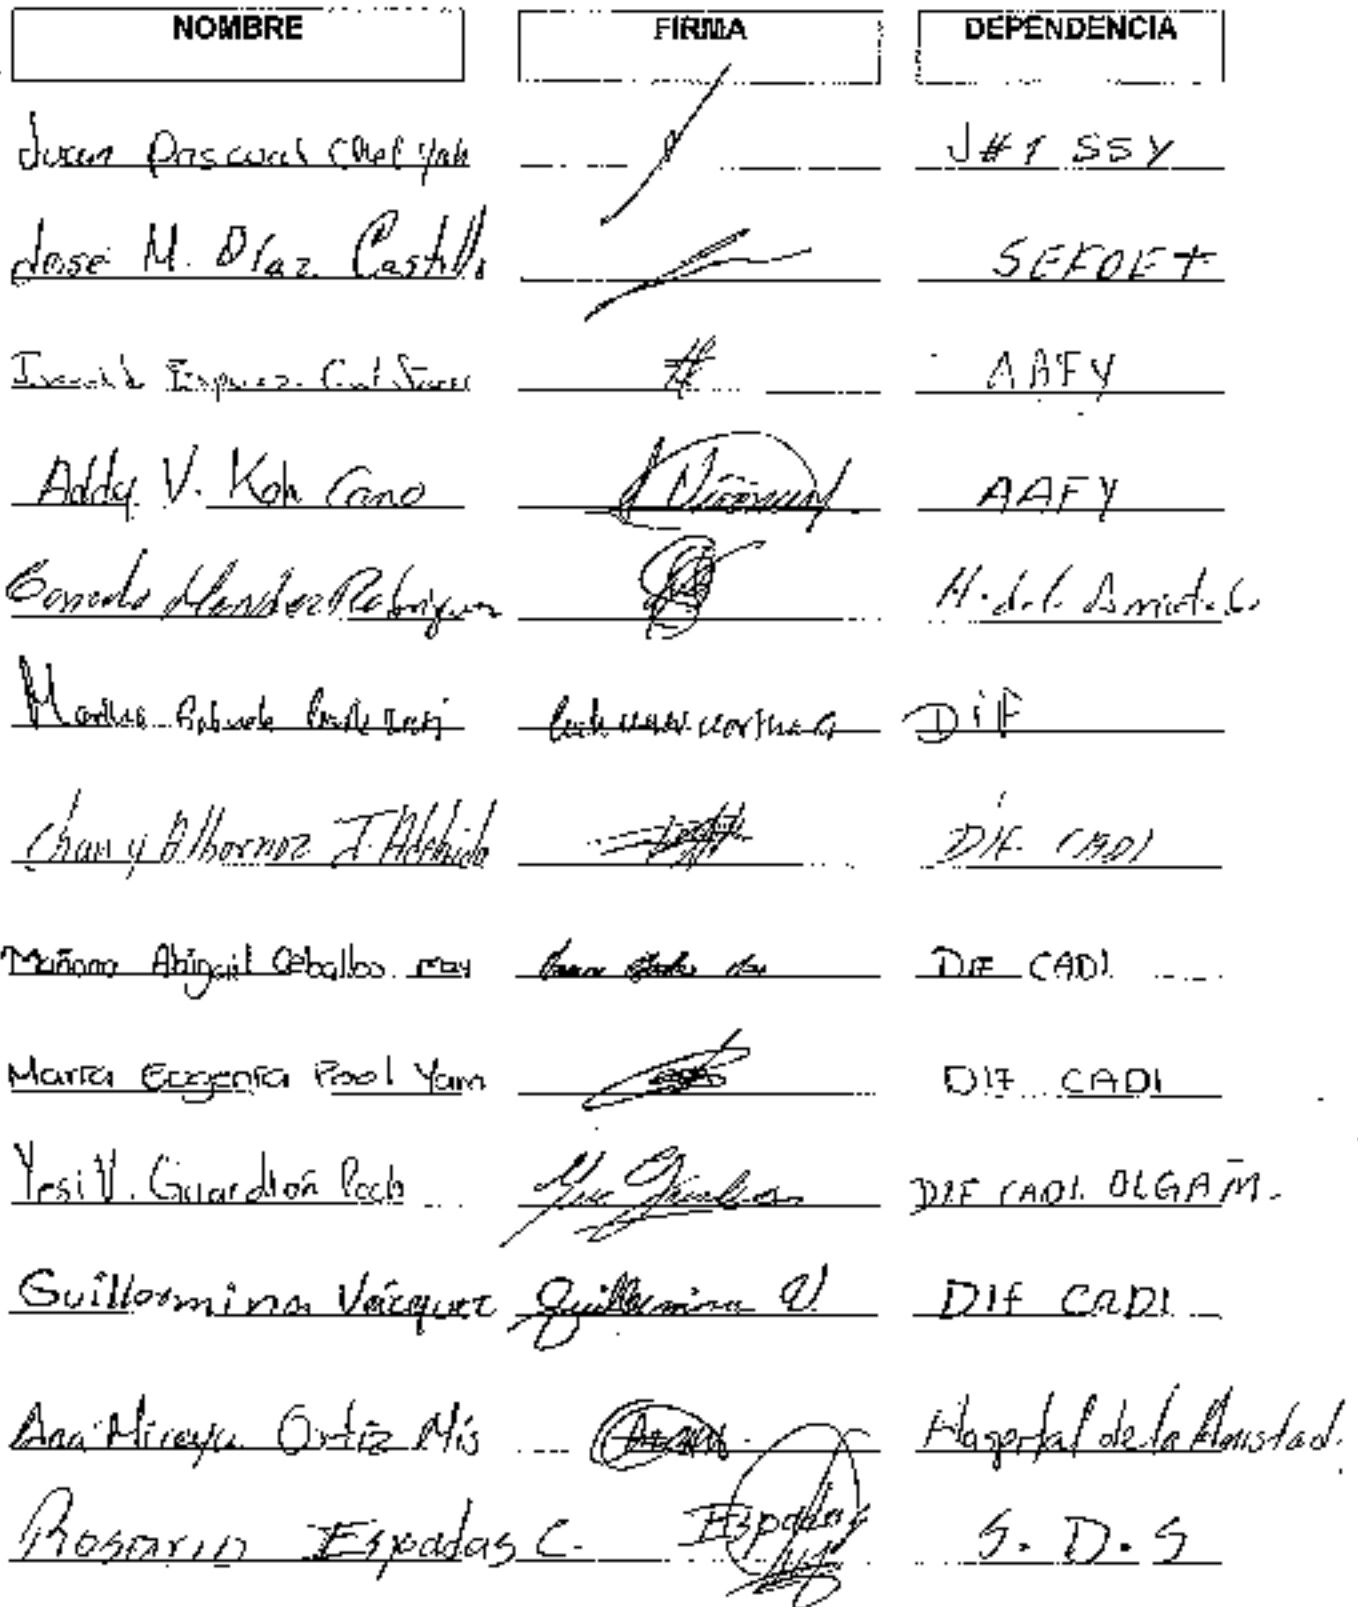 NOMBRE FIRMA DEPENDENCIA
Juan Pascual Chel Yah J#1 SSY
José M. Díaz Castillo SEFOET
AAFY
Addy V. Koh Cano AAFY
Méndez Rodríguez H. de la Amistad
DIF
Chan y Albornoz J. Adelaida DIF CADI
Abigail Ceballos May DIF CADI
María Eugenia Pool Yam DIF CADI
Yesi V. Guardián Pech DIF CADI OLGA M.
Guillermina Vázquez Guillermina V. DIF CADI
Ana Mireya Ortíz Mis Hospital de la Amistad.
Rosario Espadas C. Espadas S.D.S